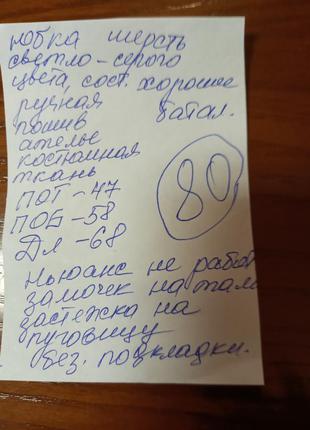 юбка шерсть
светло-серого
цвета, сост. хорошее
ручная батал.
пошив
ателье
костюмная
ткань
80
ПОТ-47
ПОБ-58
Дл-68
Ньюанс не работ
замочек на тал
застежка на
пуговицу
без. подкладки.